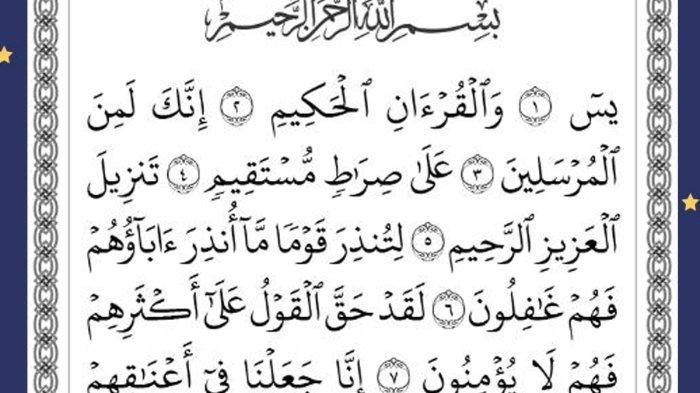 بِسْمِ ٱللَّهِ ٱلرَّحْمَٰنِ ٱلرَّحِيمِ
يسٓ ١ وَٱلْقُرْءَانِ ٱلْحَكِيمِ ٢ إِنَّكَ لَمِنَ
ٱلْمُرْسَلِينَ ٣ عَلَىٰ صِرَٰطٍ مُّسْتَقِيمٍ ٤ تَنزِيلَ
ٱلْعَزِيزِ ٱلرَّحِيمِ ٥ لِتُنذِرَ قَوْمًا مَّآ أُنذِرَ ءَابَآؤُهُمْ
فَهُمْ غَٰفِلُونَ ٦ لَقَدْ حَقَّ ٱلْقَوْلُ عَلَىٰٓ أَكْثَرِهِمْ
فَهُمْ لَا يُؤْمِنُونَ ٧ إِنَّا جَعَلْنَا فِىٓ أَعْنَٰقِهِمْ